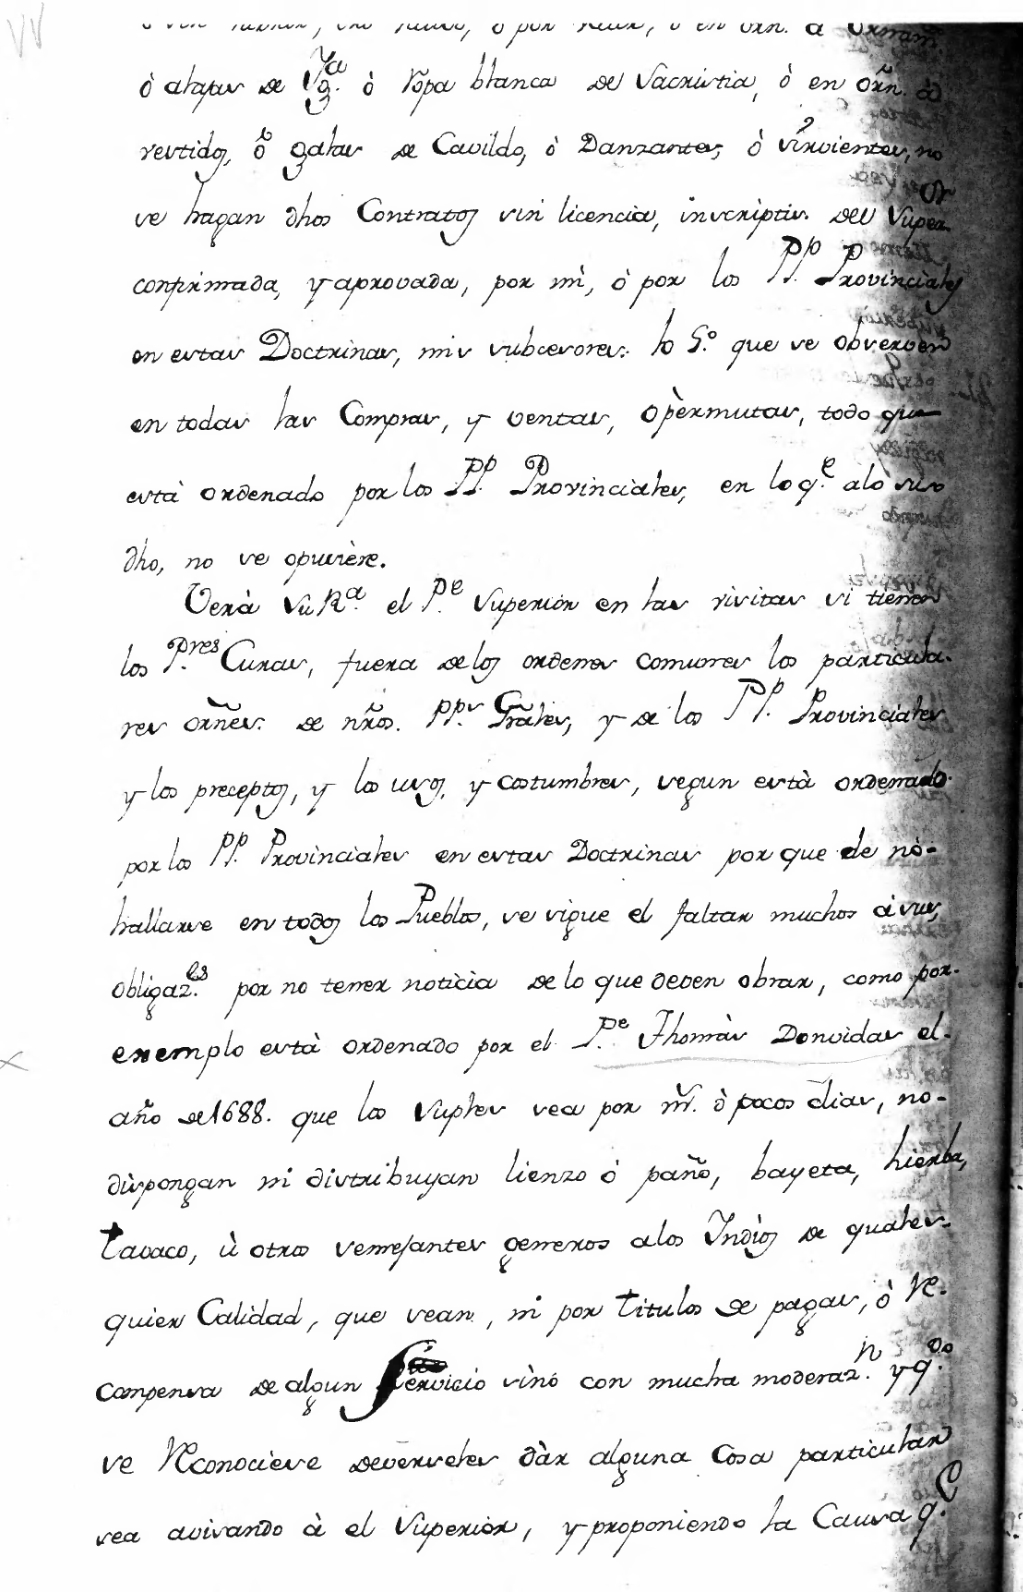 ò alajas de Yg.ª ò Ropa blanca de Sacristia, ò en orñ. à
vestidos, ò galas de Cavildo, ò Danzantes, ò sirvientes, no
se hagan dhos Contratos sin licencia, inscriptis. del Super.or
confirmada, y aprovada, por mì, ò por los PP.pp Provinciales
en estas Doctrinas, mis subcesores: lo G.º que se observen
en todas las Compras, y ventas, ò pèrmutas, todo que
està ordenado por los PP.pp Provinciales, en lo q.e alò suso
dho, no se opusière.
Verà Su R.ª el P.e Superior en las visitas si tienen
los P.res Curas, fuera de los ordenes comunes los particula.
res orñes. de nr̃os. PP.s Gr̃ales, y de los PP.pp Provinciales
y los preceptos, y los usos, y costumbres, segun està ordenado
por los PP.pp Provinciales en estas Doctrinas porque de nò-
hallarse en todos los Pueblos, se sigue el faltar muchos à sus,
obligaz.es por no tener noticia de lo que deven obrar, como por-
exemplo està ordenado por el P.e Thomàs Donvidas el-
año de 1688. que los Suples sea por m̃s. ò pocos dias, no-
dispongan ni distribuyan lienzo ò paño, bayeta, hierba,
tavaco, ù otros semejantes generos a los Indios de quales-
quier Calidad, que sean, ni por titulos de pagas, ò Re-
compensa de algun Servicio sìnò con mucha moderaz.n y q.do
se Reconociese deverseles dàr alguna Cosa particular
sea avisando à el Superior, y proponiendo la Causa q.e